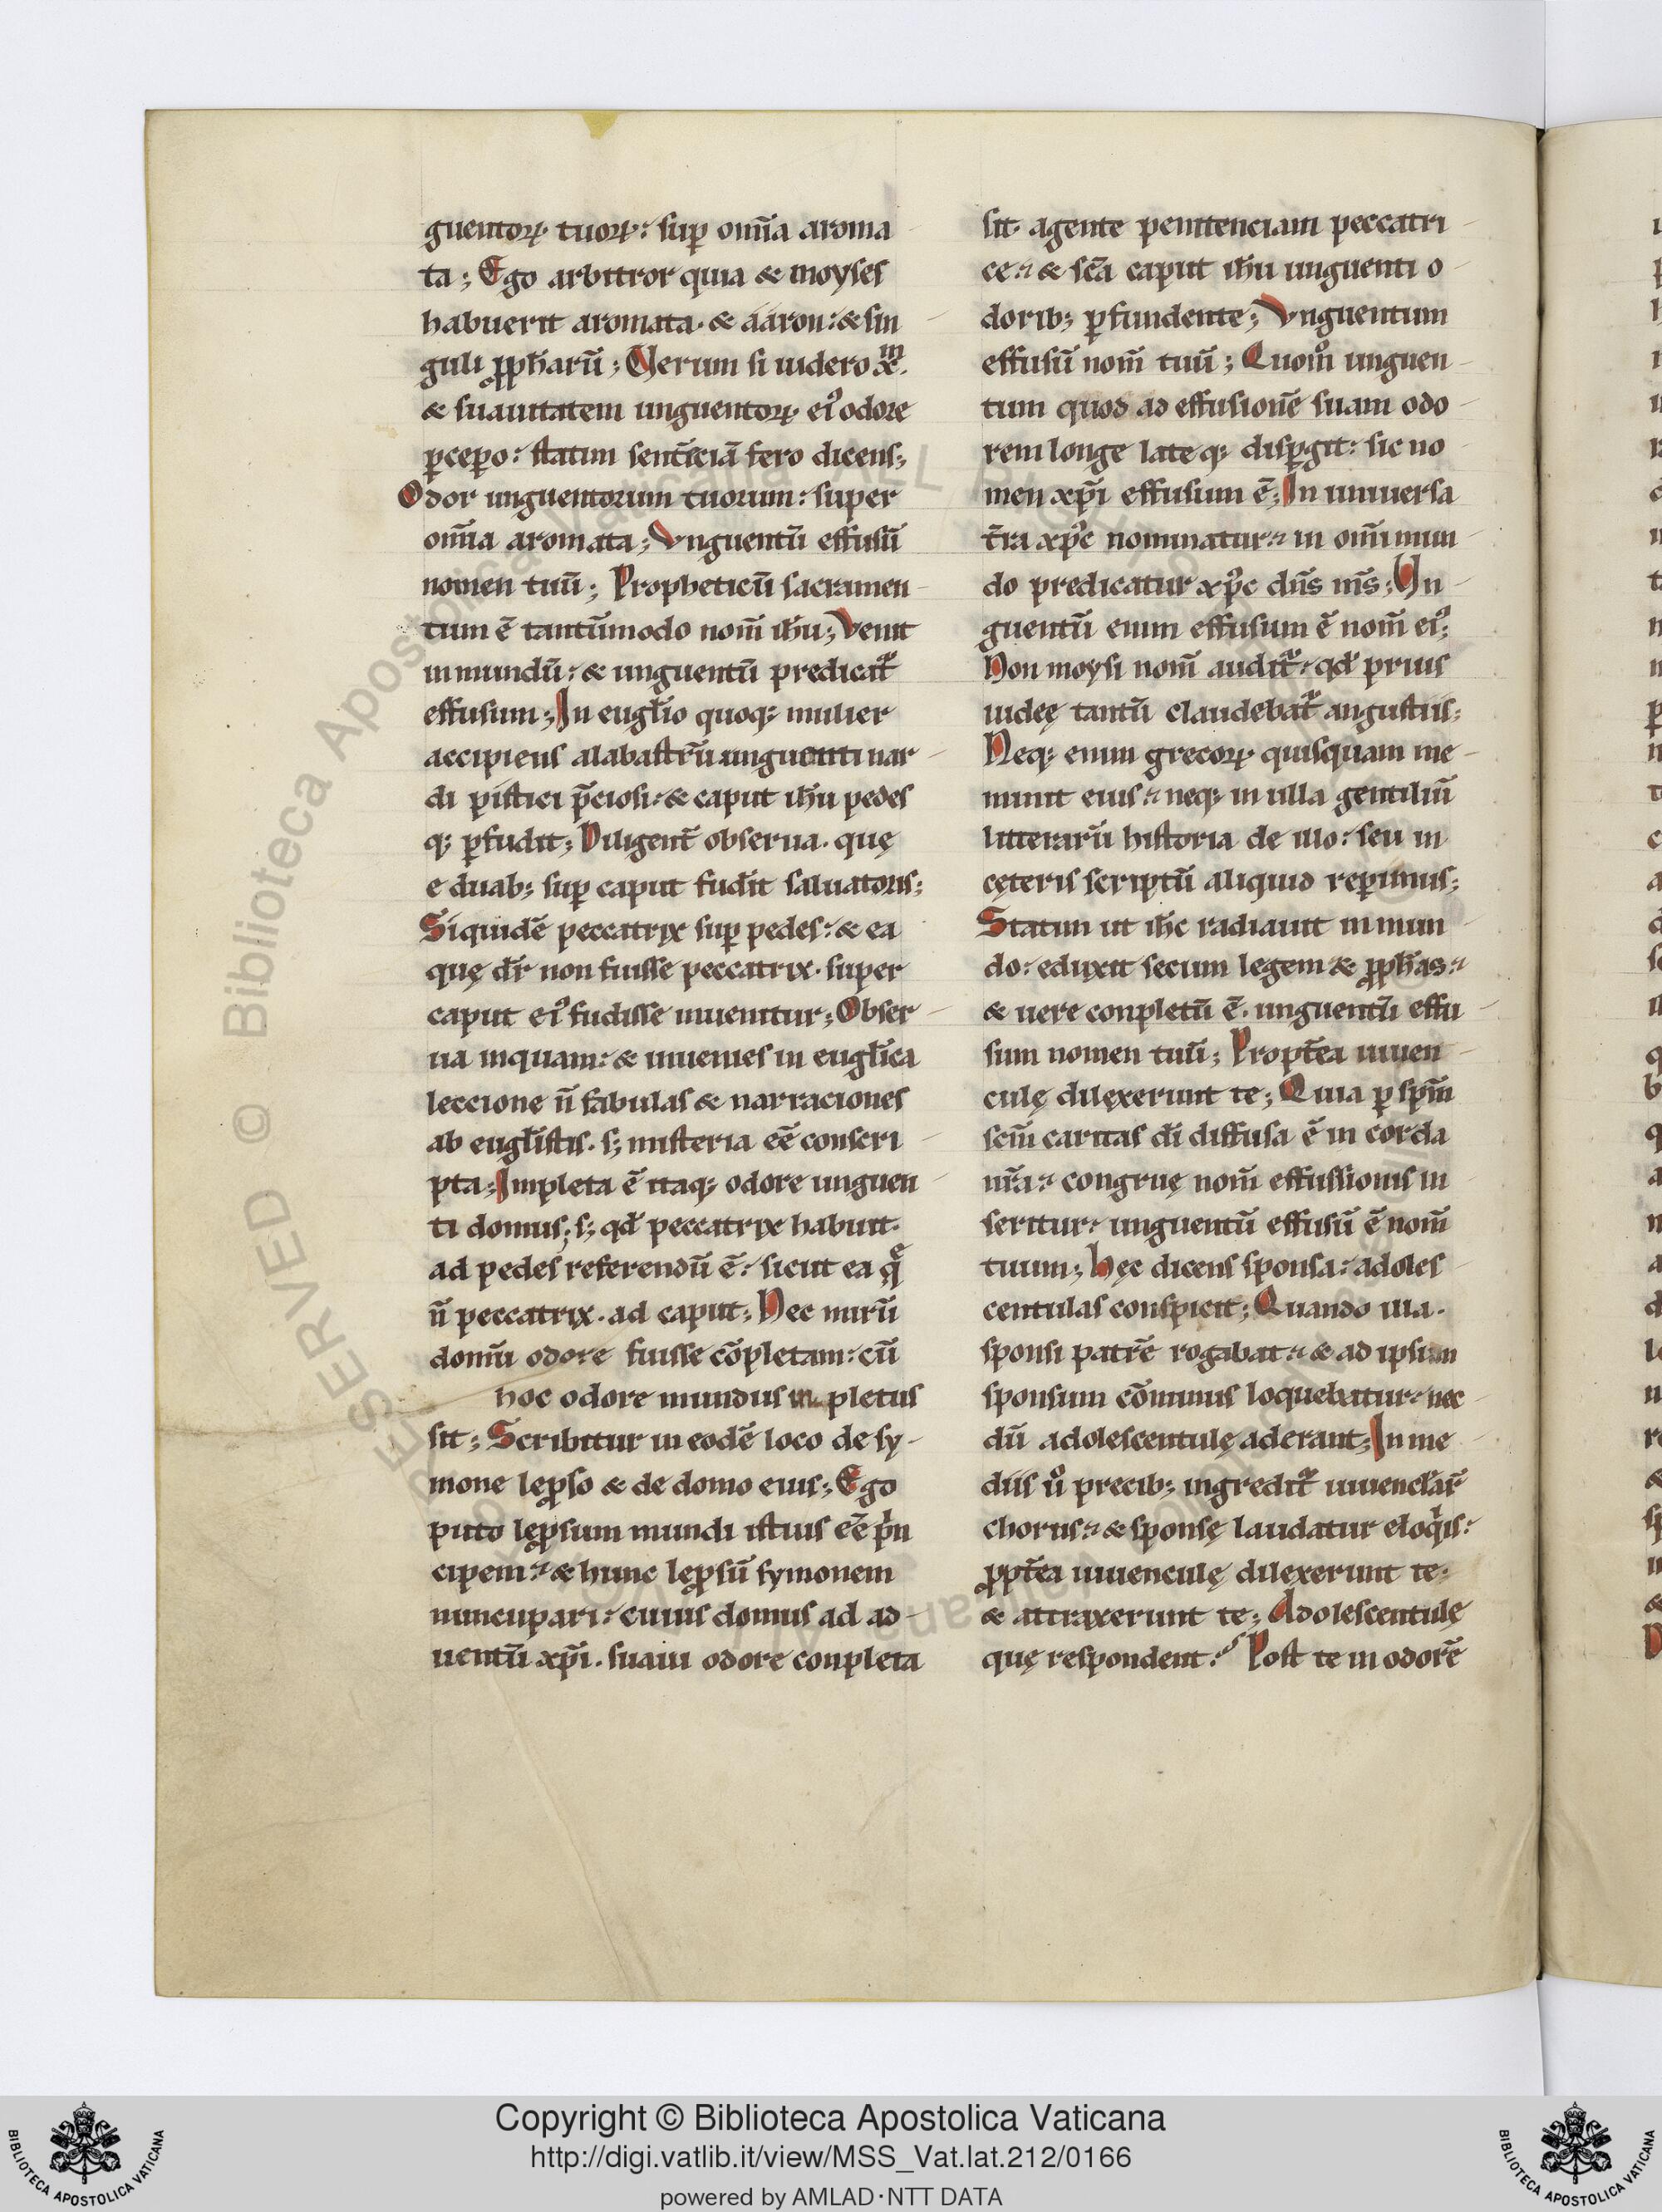 guentoꝝ tuoꝝ: suꝑ om̄ia aroma
ta; Ego arbitror quia & moyses
habuerit aromata. & ááron: & sin
guli ꝓph̄arū; Verum si uidero xp̄m.
& suauitatem unguentoꝝ ei᾿ odore
ꝑcepo: statim sentēciā fero dicens;
Odor unguentorum tuorum: super
om̄ia aromata; Vnguentū effusū
nomen tuū; Propheticū sacramen
tum ē tantūmodo nom̄ ih̄u; Venit
in mundū: & unguentū predicat᷑
effusum; In eugłio quoq; mulier
accipiens alabastrū unguenti nar
di pistici p̄ciosi: & caput ih̄u pedes
q; ꝑfudit; Diligent̄ obserua. quę
e duab; suꝑ caput fudit saluatoris;
Siquidē peccatrix suꝑ pedes: & ea
quę dr̄ non fuisse peccatrix. super
caput ei᾿ fudisse inuenitur; Obser
ua inquam: & inuenies in eugłica
leccione ñ fabulas & narraciones
ab eugłistis. s; misteria eē conscri
pta; Impleta ē itaq; odore unguen
ti domus; s; qd̄ peccatrix habuit.
ad pedes referendū ē: sicut ea qͤ
ñ peccatrix. ad caput; Nec mirū
domū odore fuisse cōpletam: cū
hoc odore mundus in pletus
sit; Scribitur in eodē loco de sy
mone leꝓso & de domo eius; Ego
puto leꝓsum mundi istius eē pⁱn
cipem: & hunc leꝓsū symonem
nuncupari: cuius domus ad ad
uentū xp̄i. suaui odore conpleta
sit. agente penitenciam peccatri
ce: & scā caput ih̄u unguenti o
dorib; ꝑfundente; Vnguentum
effusū nom̄ tuū; Quom̊ unguen
tum quod ad effusionē suam odo
rem longe late q; disꝑgit: sic no
men xp̄i effusum ē; In uniuersa
t̄ra xp̄c nominatur: in om̄i mun
do predicatur xp̄c dn̄s nr̄s; Vn
guentū enim effusum ē nom̄ ei᾿;
Non moysi nom̄ audit᷑: qd̄ prius
iudeę tantū claudebat᷑ angustiis;
Neq; enim grecoꝝ quisquam me
minit eius: neq; in ulla gentiliū
litterarū historia de illo: seu in
cęteris scriptū aliquid reꝑimus;
Statim ut ih̄c radiauit in mun
do: eduxit secum legem & ꝓph̄as:
& uere conpletū ē. unguentū effu
sum nomen tuū; Propt̄ea iuuen
culę dilexerunt te; Quia ꝑ sp̄m
scm̄ caritas dī diffusa ē in corda
nr̄a: congruę nom̄ effussionis in
seritur: unguentū effusū ē nom̄
tuum; Hęc dicens sponsa: adoles
centulas conspicit; Quando illa.
sponsi patrē rogabat: & ad ipsum
sponsum cōminus loquebatur: nec
dū adolescentulę aderant; In me
diis ů precib; ingredit᷑ iuuencłar̄
chorus: & sponsę laudatur eloqⁱis:
ꝓpt̄ea iuuenculę dilexerunt te;
& attraxerunt te; Adolescentulę
quę respondent: Post te in odorē
Copyright © Biblioteca Apostolica Vaticana
http://digi.vatlib.it/view/MSS_Vat.lat.212/0166
powered by AMLAD·NTT DATA